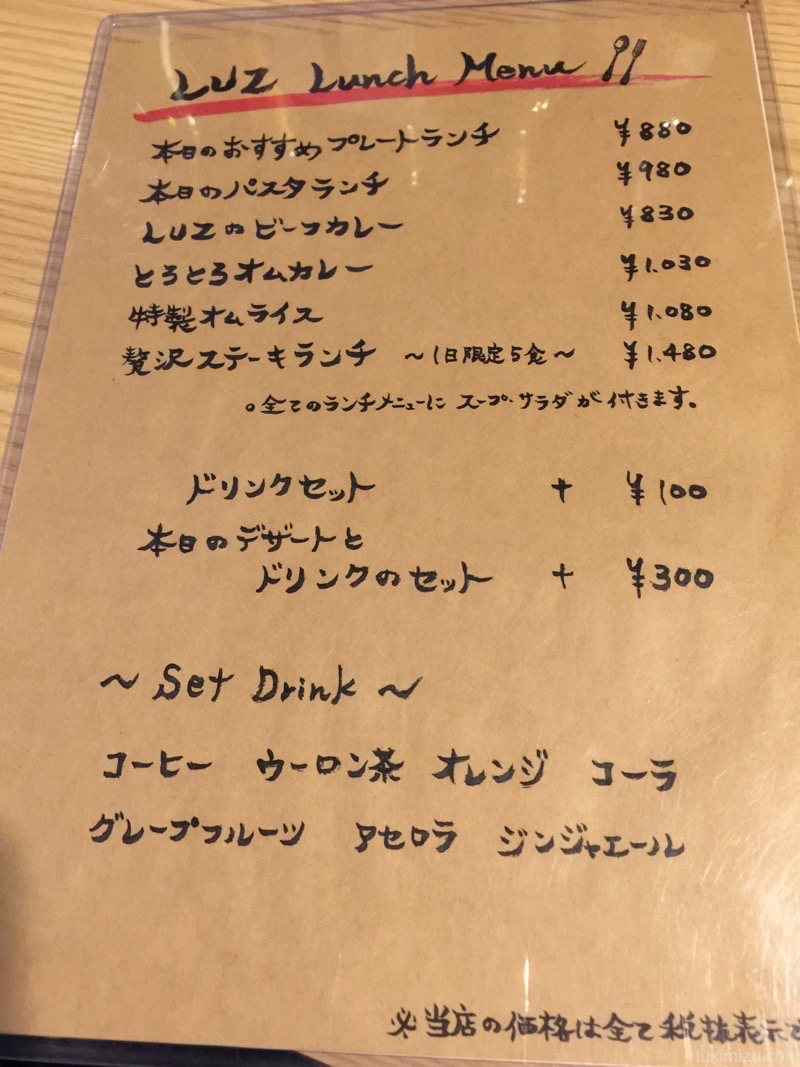 LUZ Lunch Menu
本日のおすすめプレートランチ ¥880
本日のパスタランチ ¥980
LUZのビーフカレー ¥830
とろとろオムカレー ¥1.030
特製オムライス ¥1.080
贅沢ステーキランチ 〜1日限定5食〜 ¥1.480
。全てのランチメニューに スープ・サラダが付きます。
ドリンクセット + ¥100
本日のデザートと
ドリンクのセット + ¥300
〜 Set Drink 〜
コーヒー ウーロン茶 オレンジ コーラ
グレープフルーツ アセロラ ジンジャエール
※当店の価格は全て税抜表示
tukimizu.com